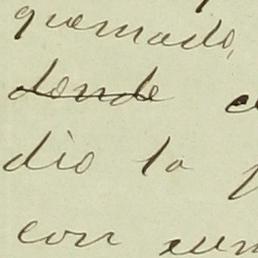 quemado,
donde
dio la
con un